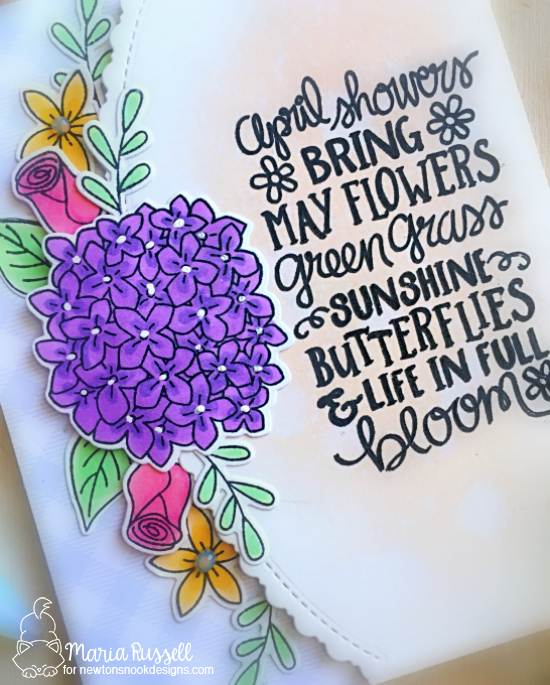 April showers
BRING
MAY FLOWERS
green grass
SUNSHINE
BUTTERFLIES
& LIFE IN FULL
bloom
Maria Russell
for newtonsnookdesigns.com